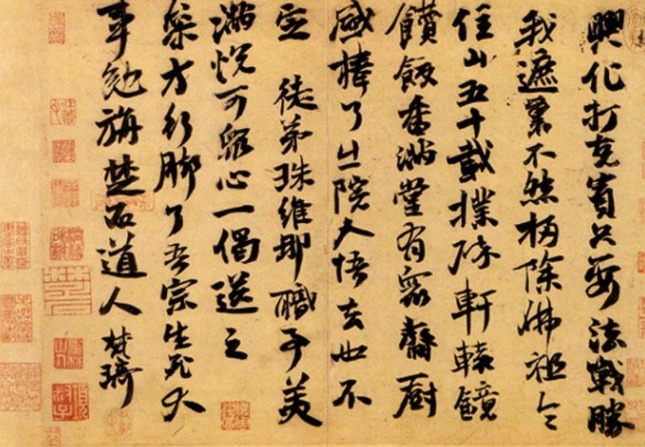 興化打克賓只要法戰勝
我遮裏不然柄除佛祖令
住山五十載撲碎軒轅鏡
饡飯香滿堂有眾罄厨
盛棒了出院大悟去也不
定 徒弟珠維那職事美
滿悅可眾心一偈送之
方行脚了吾宗生死大
事勉旃楚石道人梵琦